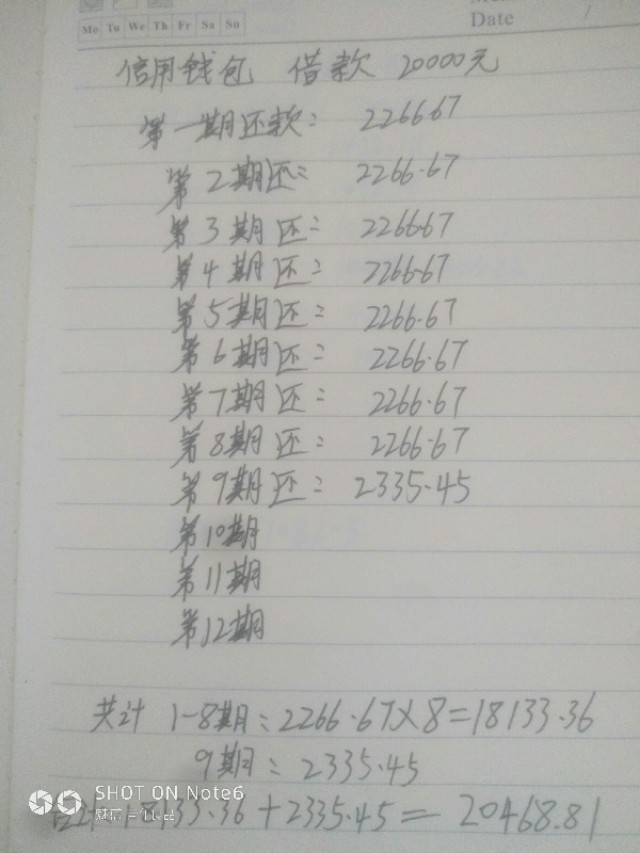 Date
Mo Tu We Th Fr Sa Su
信用钱包 借款 20000元
第一期还款: 2266.67
第2期还: 2266.67
第3期还: 2266.67
第4期还: 2266.67
第5期还: 2266.67
第6期还: 2266.67
第7期还: 2266.67
第8期还: 2266.67
第9期还: 2335.45
第10期
第11期
第12期
共计 1-8期:2266.67×8=18133.36
9期:2335.45
18133.36+2335.45=20468.81
SHOT ON Note6